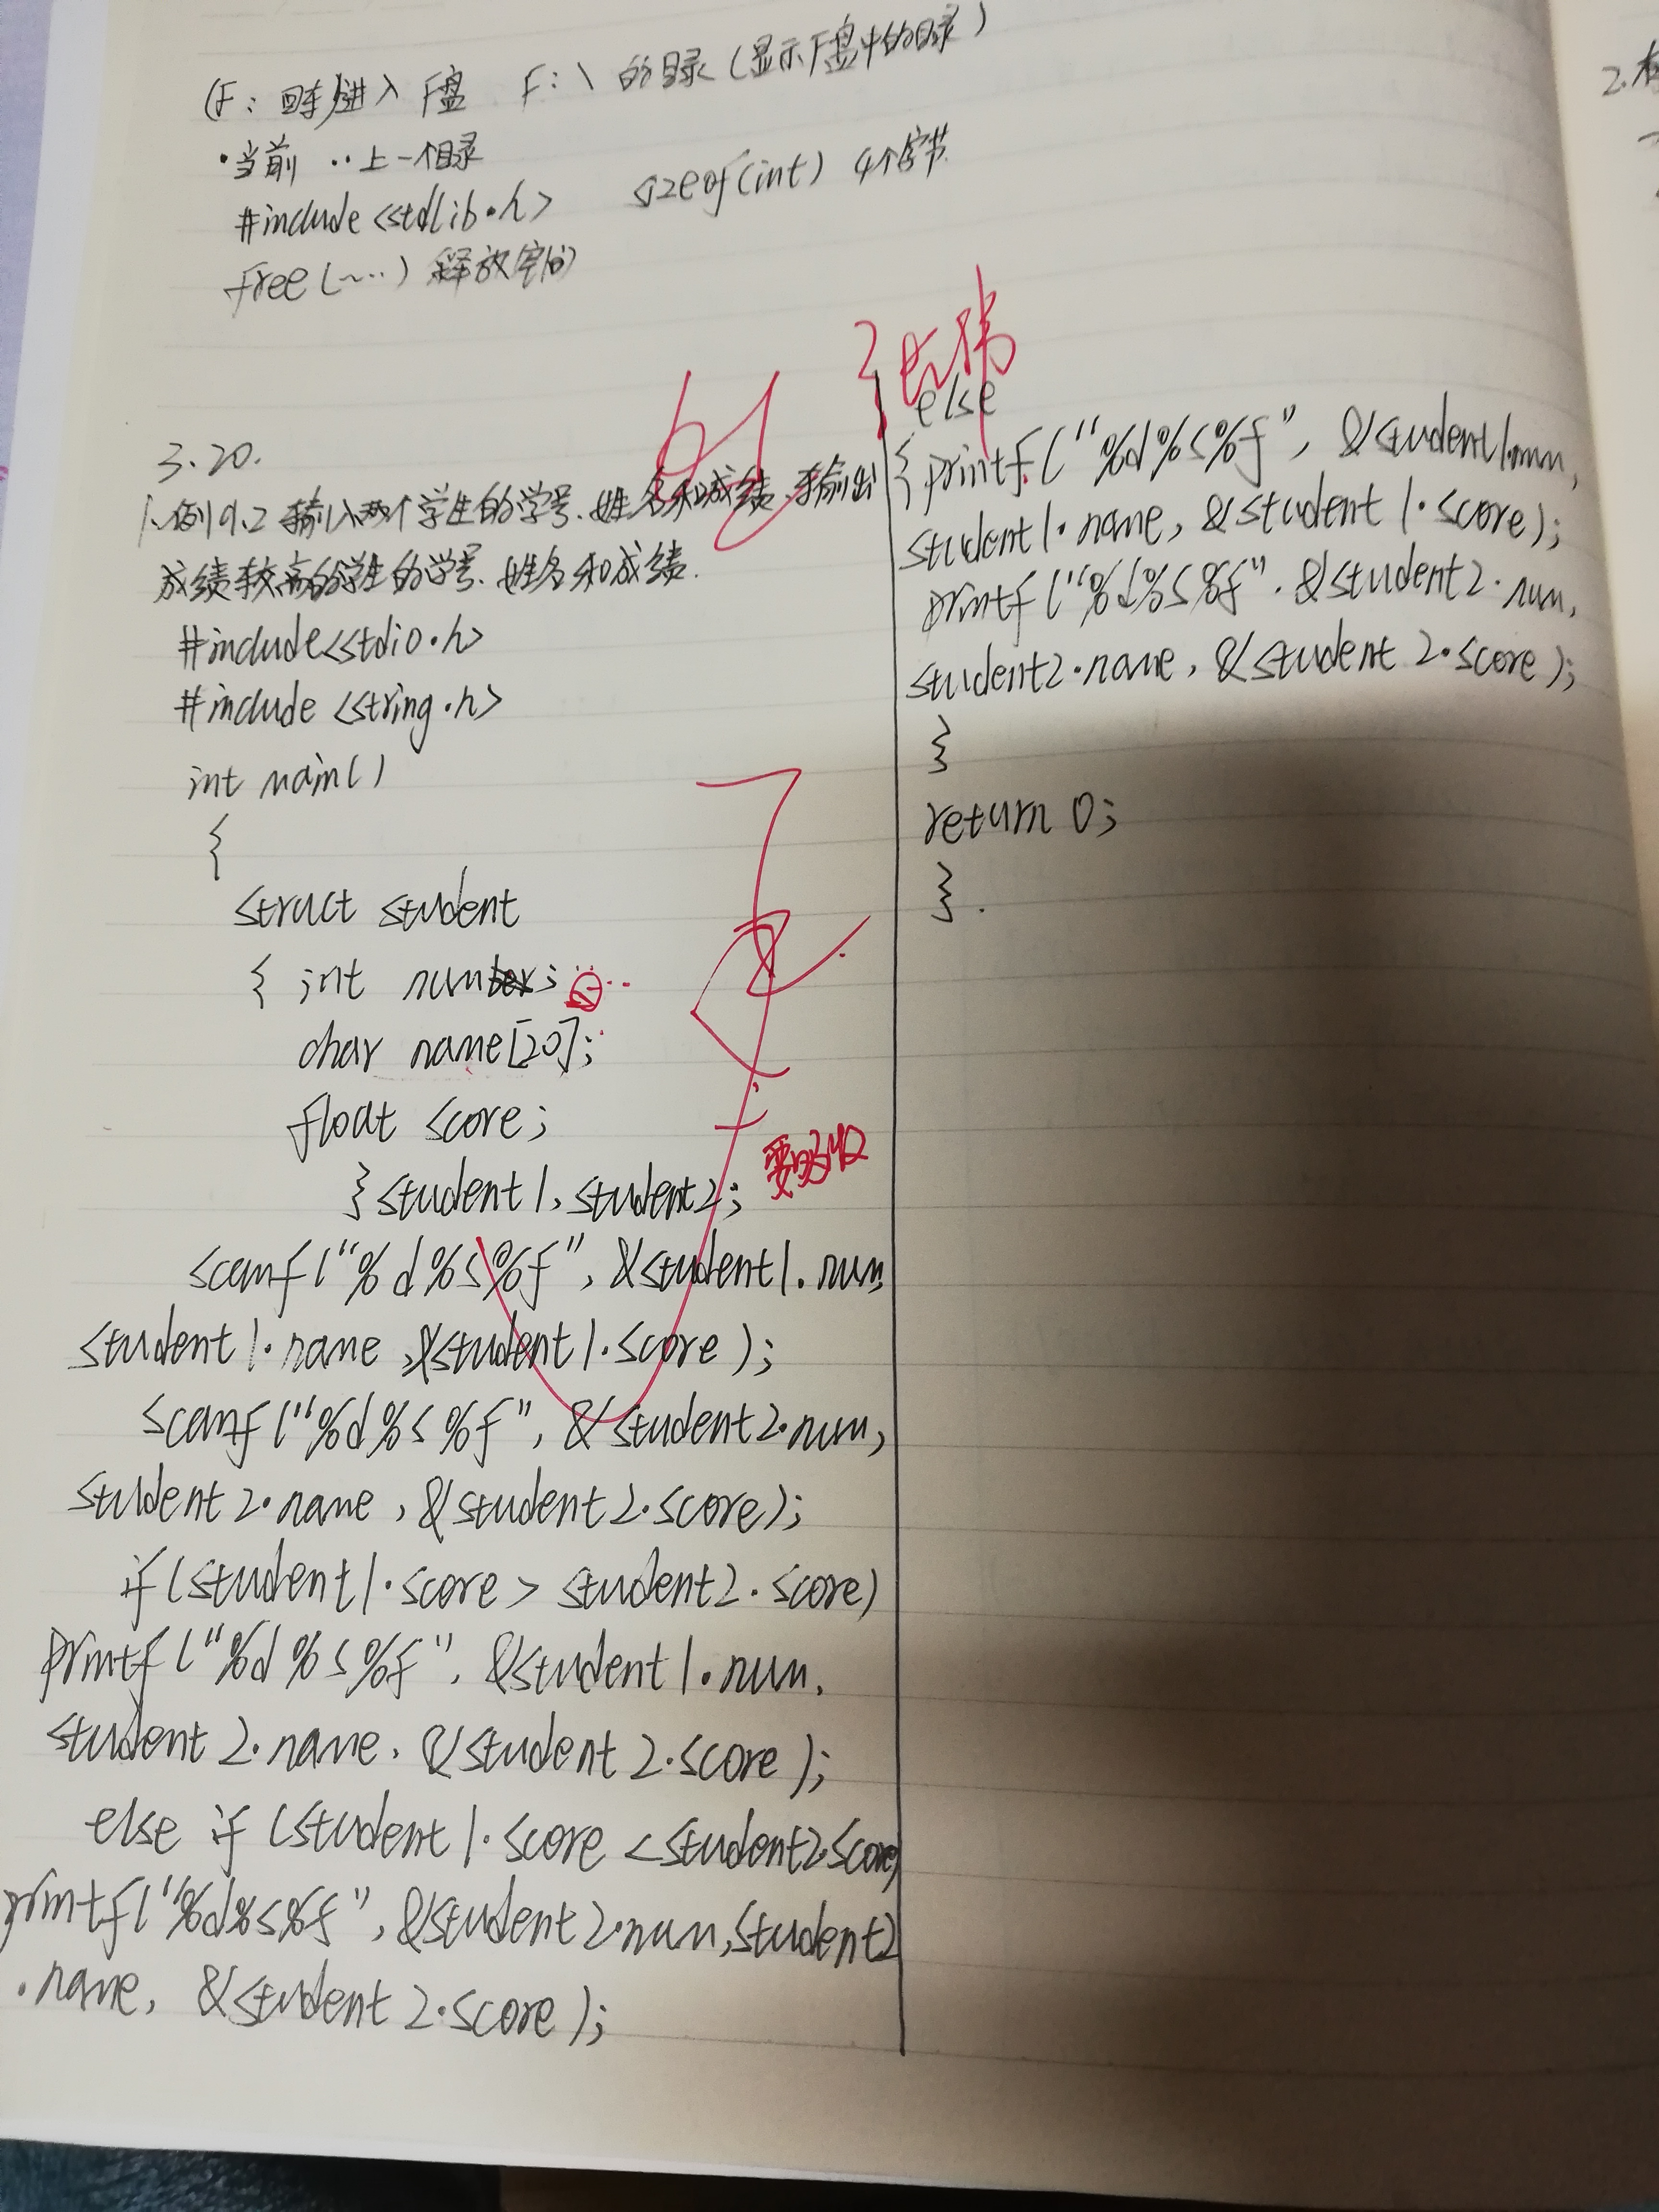 (F：回车)进入F盘 F:\ 的目录(显示F盘中的目录)
·当前 ··上一个目录
#include <stdlib.h> sizeof(int) 4个字节
free(~··) 释放空间
3.20.
1.例9.2 输入两个学生的学号、姓名和成绩,输出
成绩较高的学生的学号、姓名和成绩.
#include<stdio.h>
#include <string.h>
int main()
{
struct student
{ int num;
char name[20];
float score;
}student1,student2;
scanf("%d%s%f", &student1.num,
student1.name,&student1.score);
scanf("%d%s%f", &student2.num,
student2.name,&student2.score);
if(student1.score > student2.score)
printf("%d%s%f", &student1.num,
student2.name, &student2.score);
else if (student1.score <student2.score)
printf("%d%s%f", &student2.num,student2
.name, &student2.score);
else
{printf("%d%s%f", &student1.num,
student1.name, &student1.score);
printf("%d%s%f", &student2.num,
student2.name, &student2.score);
}
return 0;
}.
2.